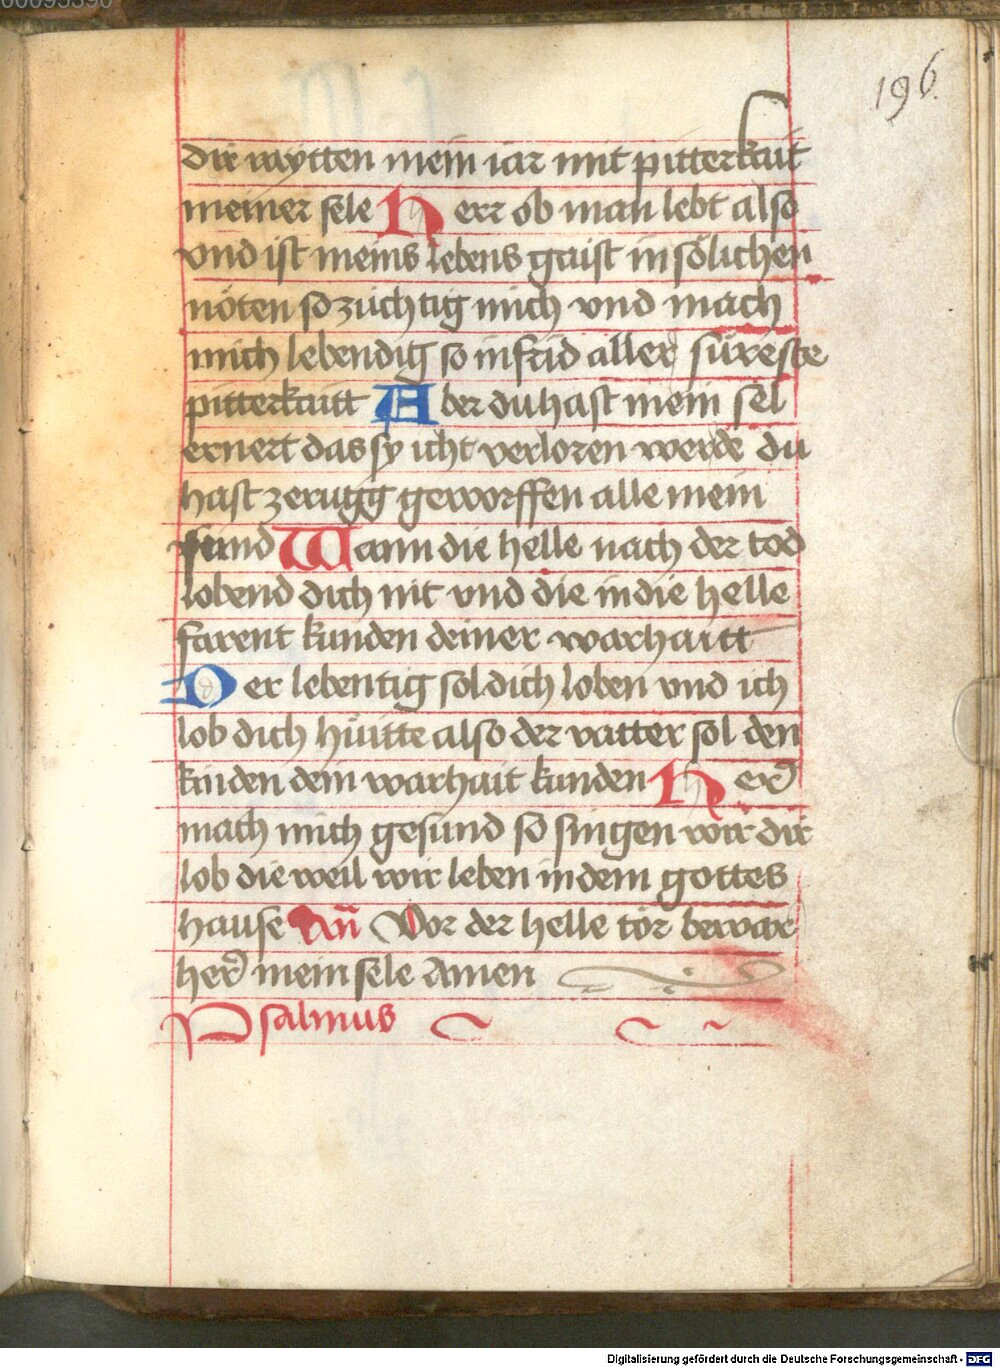 196.
dir wytten mein iar mit pitterkait
meiner sele Herr ob man lebt also
vnd ist meins lebens gaist in sölichen
nöten so züchtig mich vnd mach
mich lebendig so in frid aller süreste
pitterkaitt Aber du hast mein sel
ernert das sy icht verloren werde du
hast zerugg geworffen alle mein
sünd Wann die helle nach der tod
lobend dich nit vnd die in die helle
farent kunden deiner warhaitt
Der lebentig sol dich loben vnd ich
lob dich hüitte also der vatter sol den
kinden dein warhait kunden Her̄
mach mich gesund so singen wir dir
lob die weil wir leben in dem gottes
hause Añ Vor der helle tör bewar
her̄ mein sele Amen
Psalmus
Digitalisierung gefördert durch die Deutsche Forschungsgemeinschaft - DFG